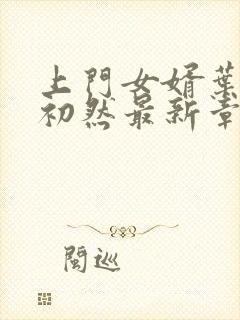 上門女婿葉
初然最新章
閩巡